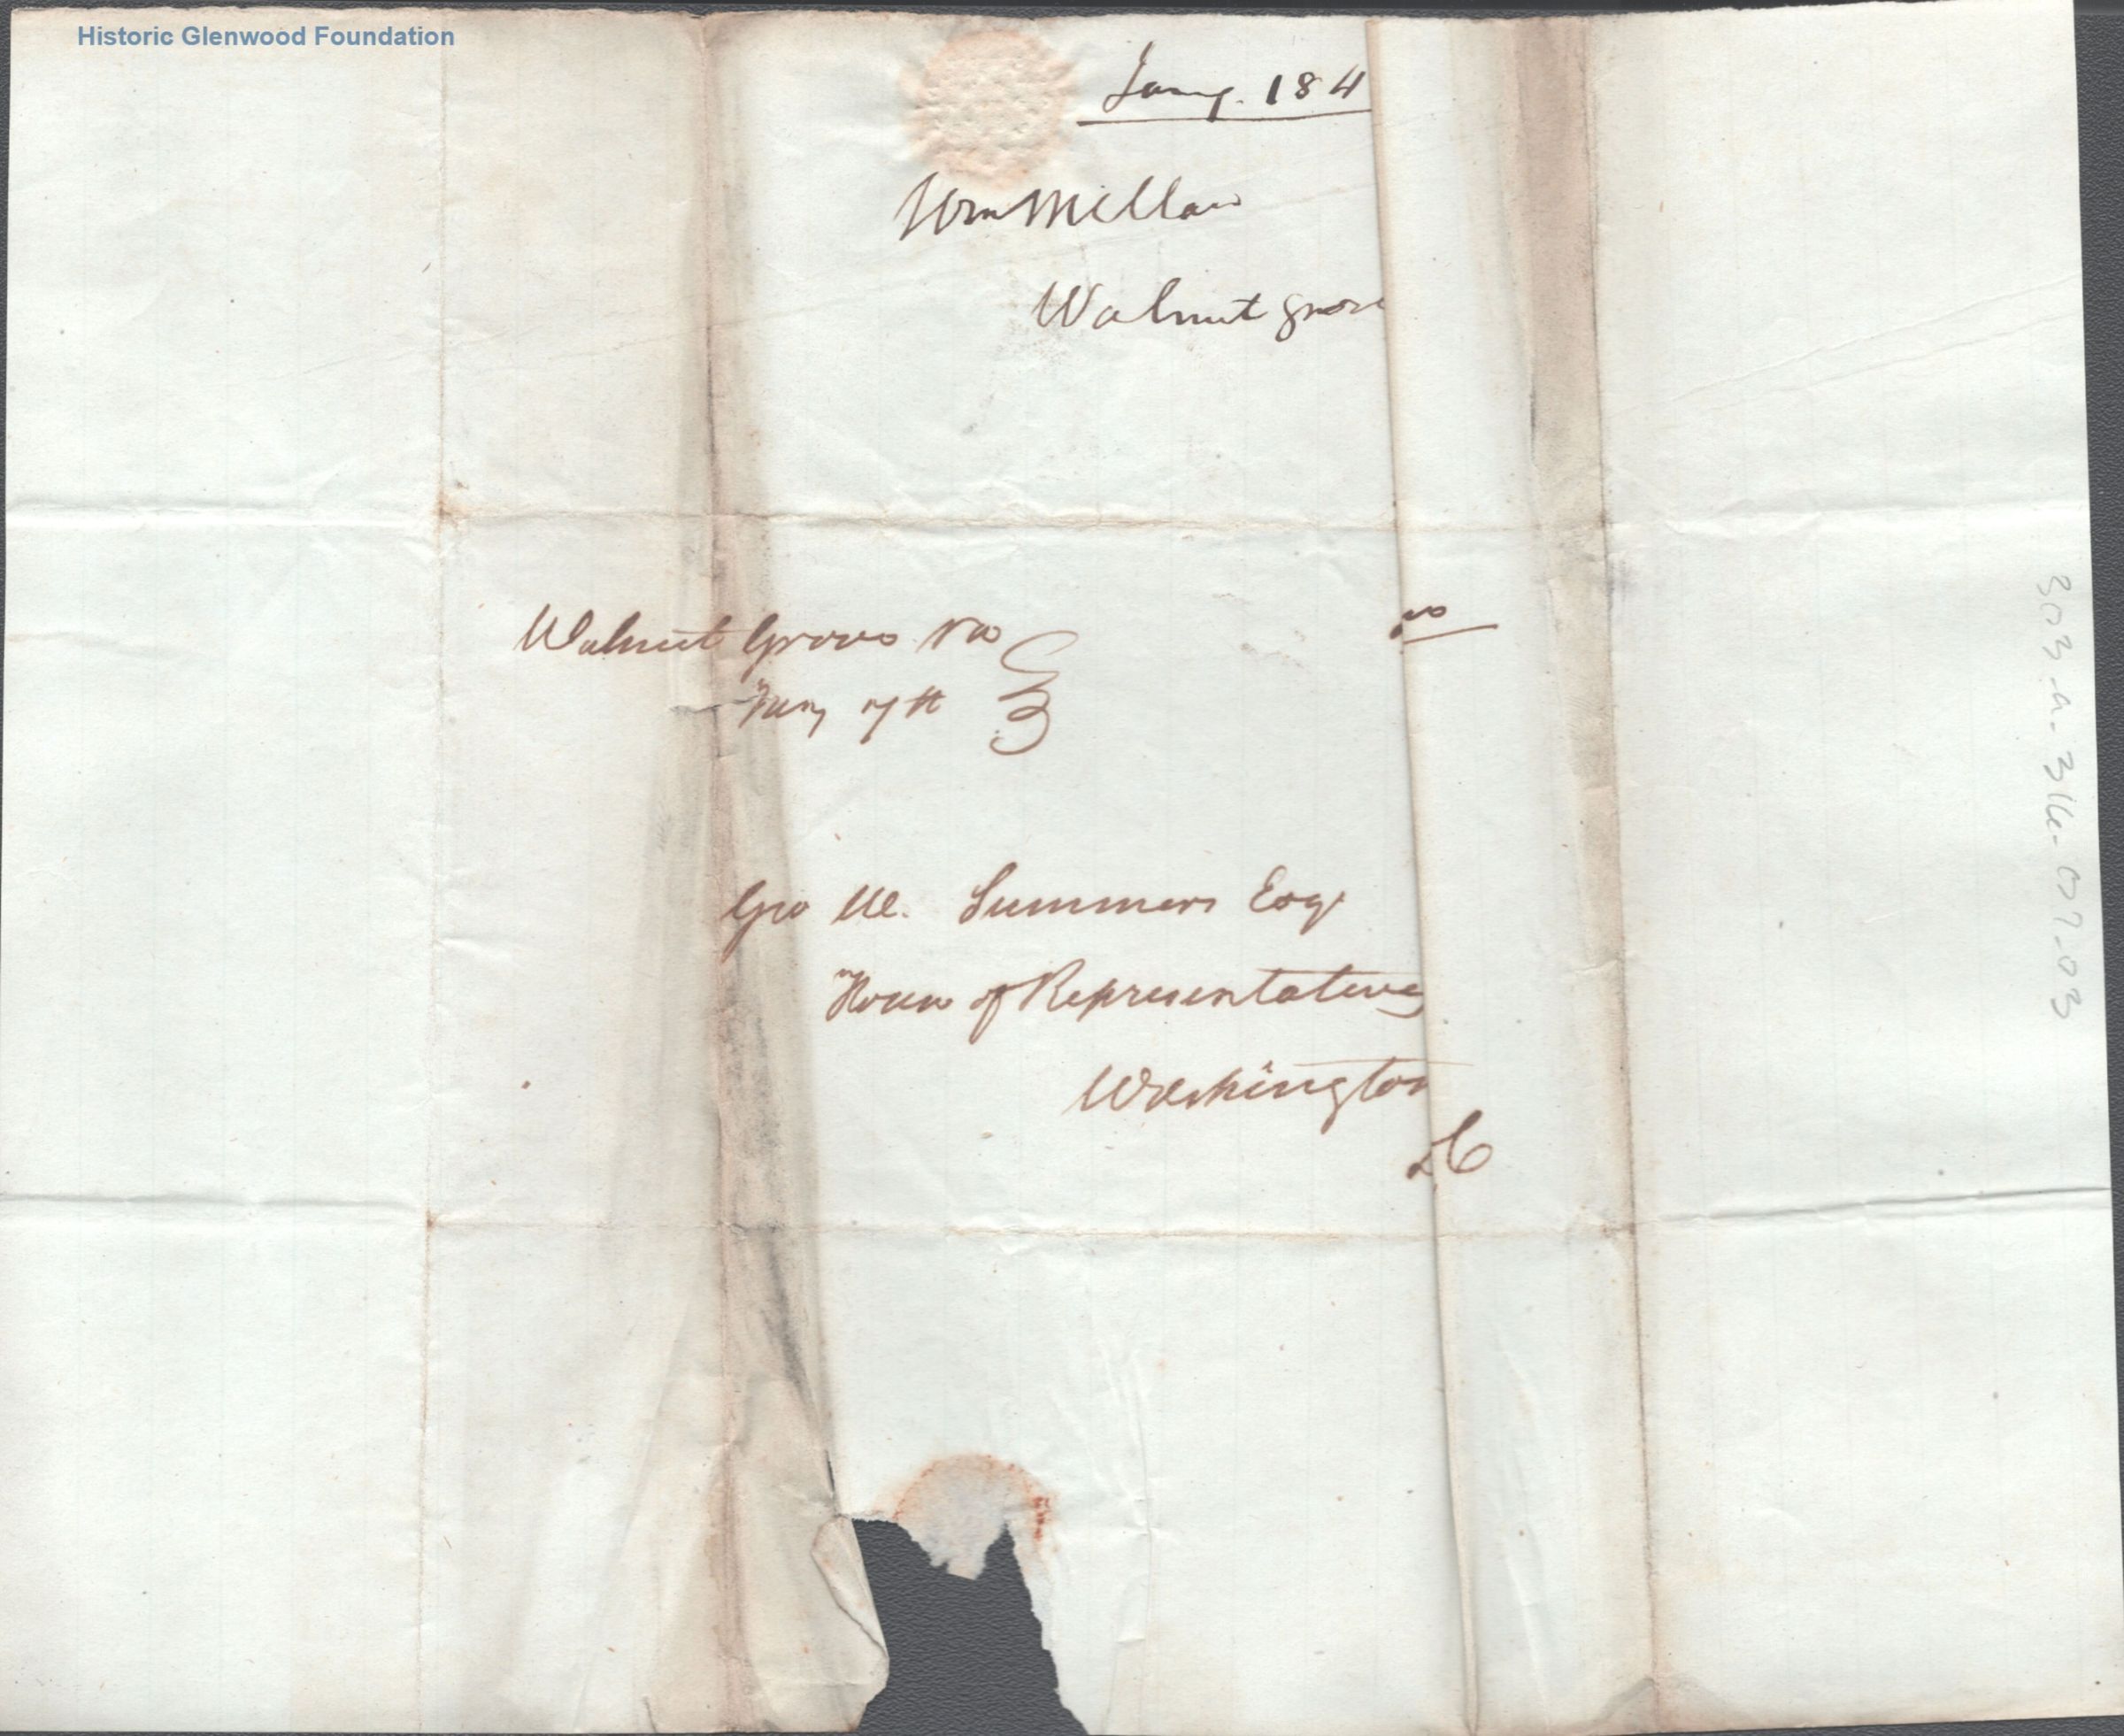 Historic Glenwood Foundation
Jany. 184
Wm Millan
Walnut grove
Walnut Grove Va
Jany 17th
Geo W. Summers Esqr
House of Representatives
Washington
DC
303-a-316-07-03